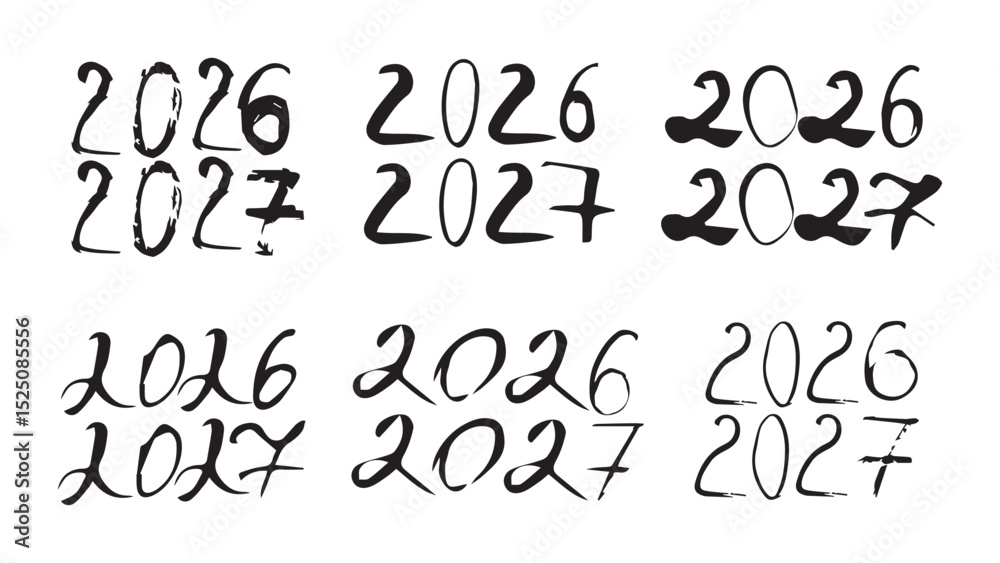 2026 2026 2026
2027 2027 2027
2026 2026 2026
2027 2027 2027
Adobe Stock | #1525085556